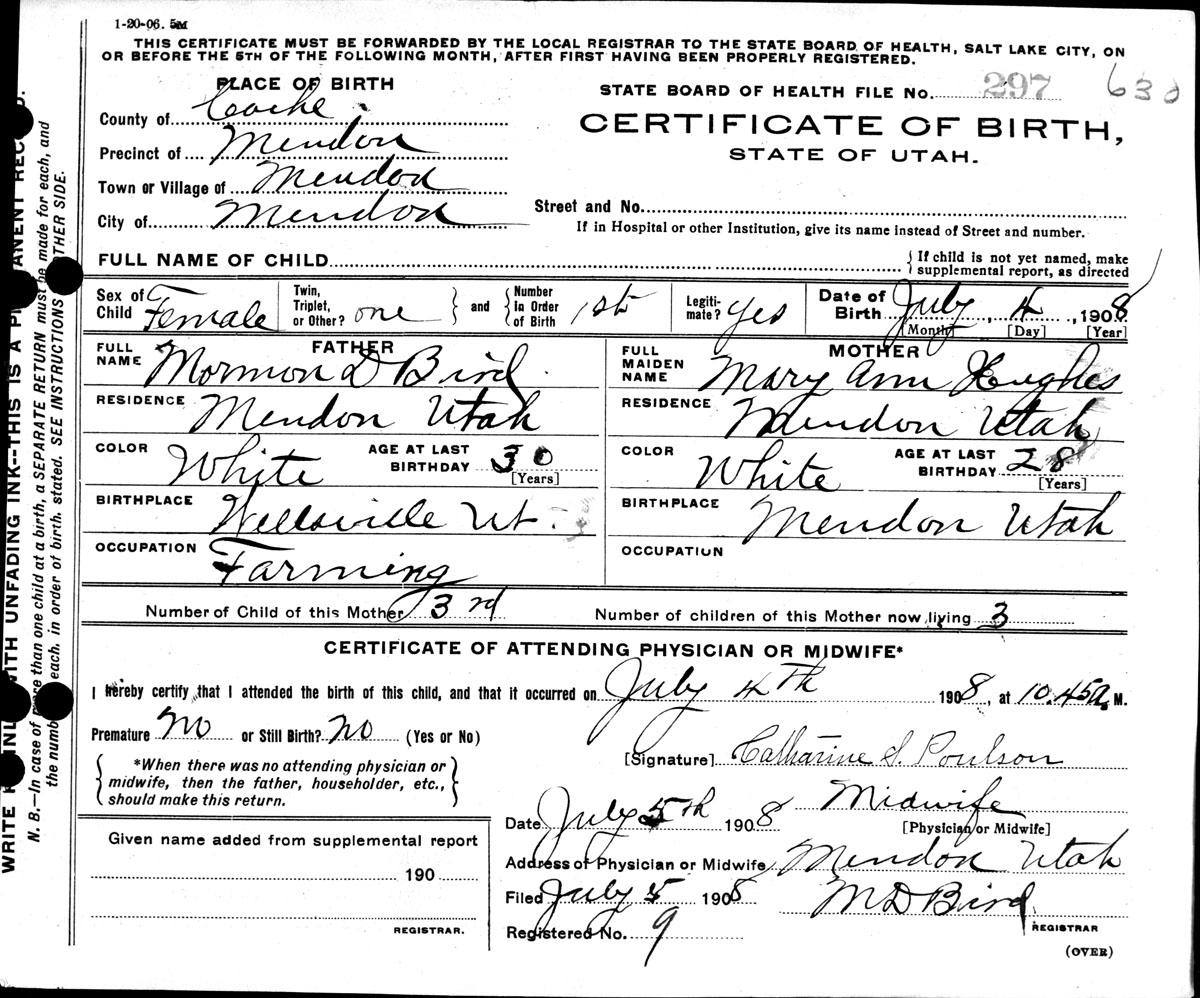 1-20-06. 5M
THIS CERTIFICATE MUST BE FORWARDED BY THE LOCAL REGISTRAR TO THE STATE BOARD OF HEALTH, SALT LAKE CITY, ON
OR BEFORE THE 5TH OF THE FOLLOWING MONTH, AFTER FIRST HAVING BEEN PROPERLY REGISTERED.
PLACE OF BIRTH
County of Cache
Precinct of Mendon
Town or Village of Mendon
City of Mendon
STATE BOARD OF HEALTH FILE No. 297
CERTIFICATE OF BIRTH,
STATE OF UTAH.
Street and No.
If in Hospital or other Institution, give its name instead of Street and number.
FULL NAME OF CHILD
{ If child is not yet named, make
supplemental report, as directed
Sex of Child Female Twin, Triplet, or Other? one } and { Number in Order of Birth 1st Legitimate? Yes Date of Birth July 4, 1908
[Month] [Day] [Year]
FATHER
FULL NAME Mormon D Bird
RESIDENCE Mendon Utah
COLOR White AGE AT LAST BIRTHDAY 30
[Years]
BIRTHPLACE Wellsville Ut.
OCCUPATION Farming
MOTHER
FULL MAIDEN NAME Mary Ann Hughes
RESIDENCE Mendon Utah
COLOR White AGE AT LAST BIRTHDAY 28
[Years]
BIRTHPLACE Mendon Utah
OCCUPATION
Number of Child of this Mother 3rd Number of children of this Mother now living 3
CERTIFICATE OF ATTENDING PHYSICIAN OR MIDWIFE*
I hereby certify that I attended the birth of this child, and that it occurred on July 4th 1908, at 10.45a. M.
Premature No or Still Birth? No (Yes or No)
{ *When there was no attending physician or
midwife, then the father, householder, etc.,
should make this return. }
[Signature] Catharine S. Poulson
Date July 5th 1908 Midwife
[Physician or Midwife]
Address of Physician or Midwife Mendon Utah
Filed July 5 1908 M D Bird
REGISTRAR
Registered No. 9
(OVER)
Given name added from supplemental report
190
REGISTRAR.
N. B.—In case of more than one child at a birth, a SEPARATE RETURN must be made for each, and
the number each, in order of birth, stated. SEE INSTRUCTIONS OTHER SIDE.